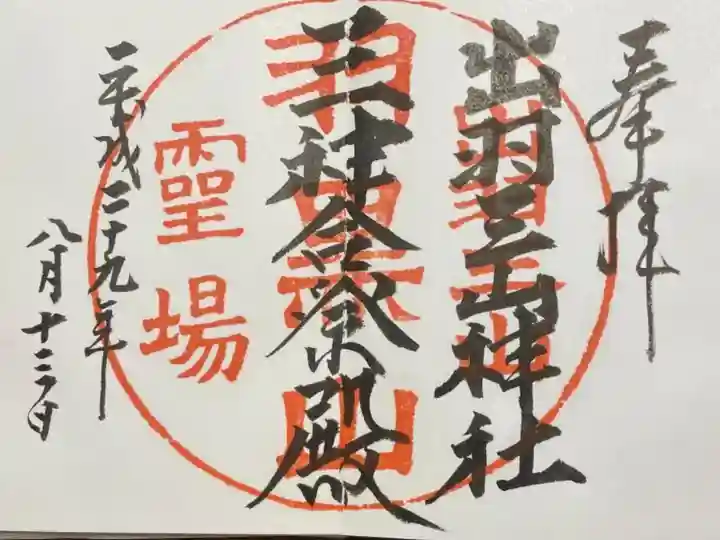 奉拝
出羽三山神社
三社合祭殿
平成二十九年
八月十二日
出羽三山
羽黒山
靈場